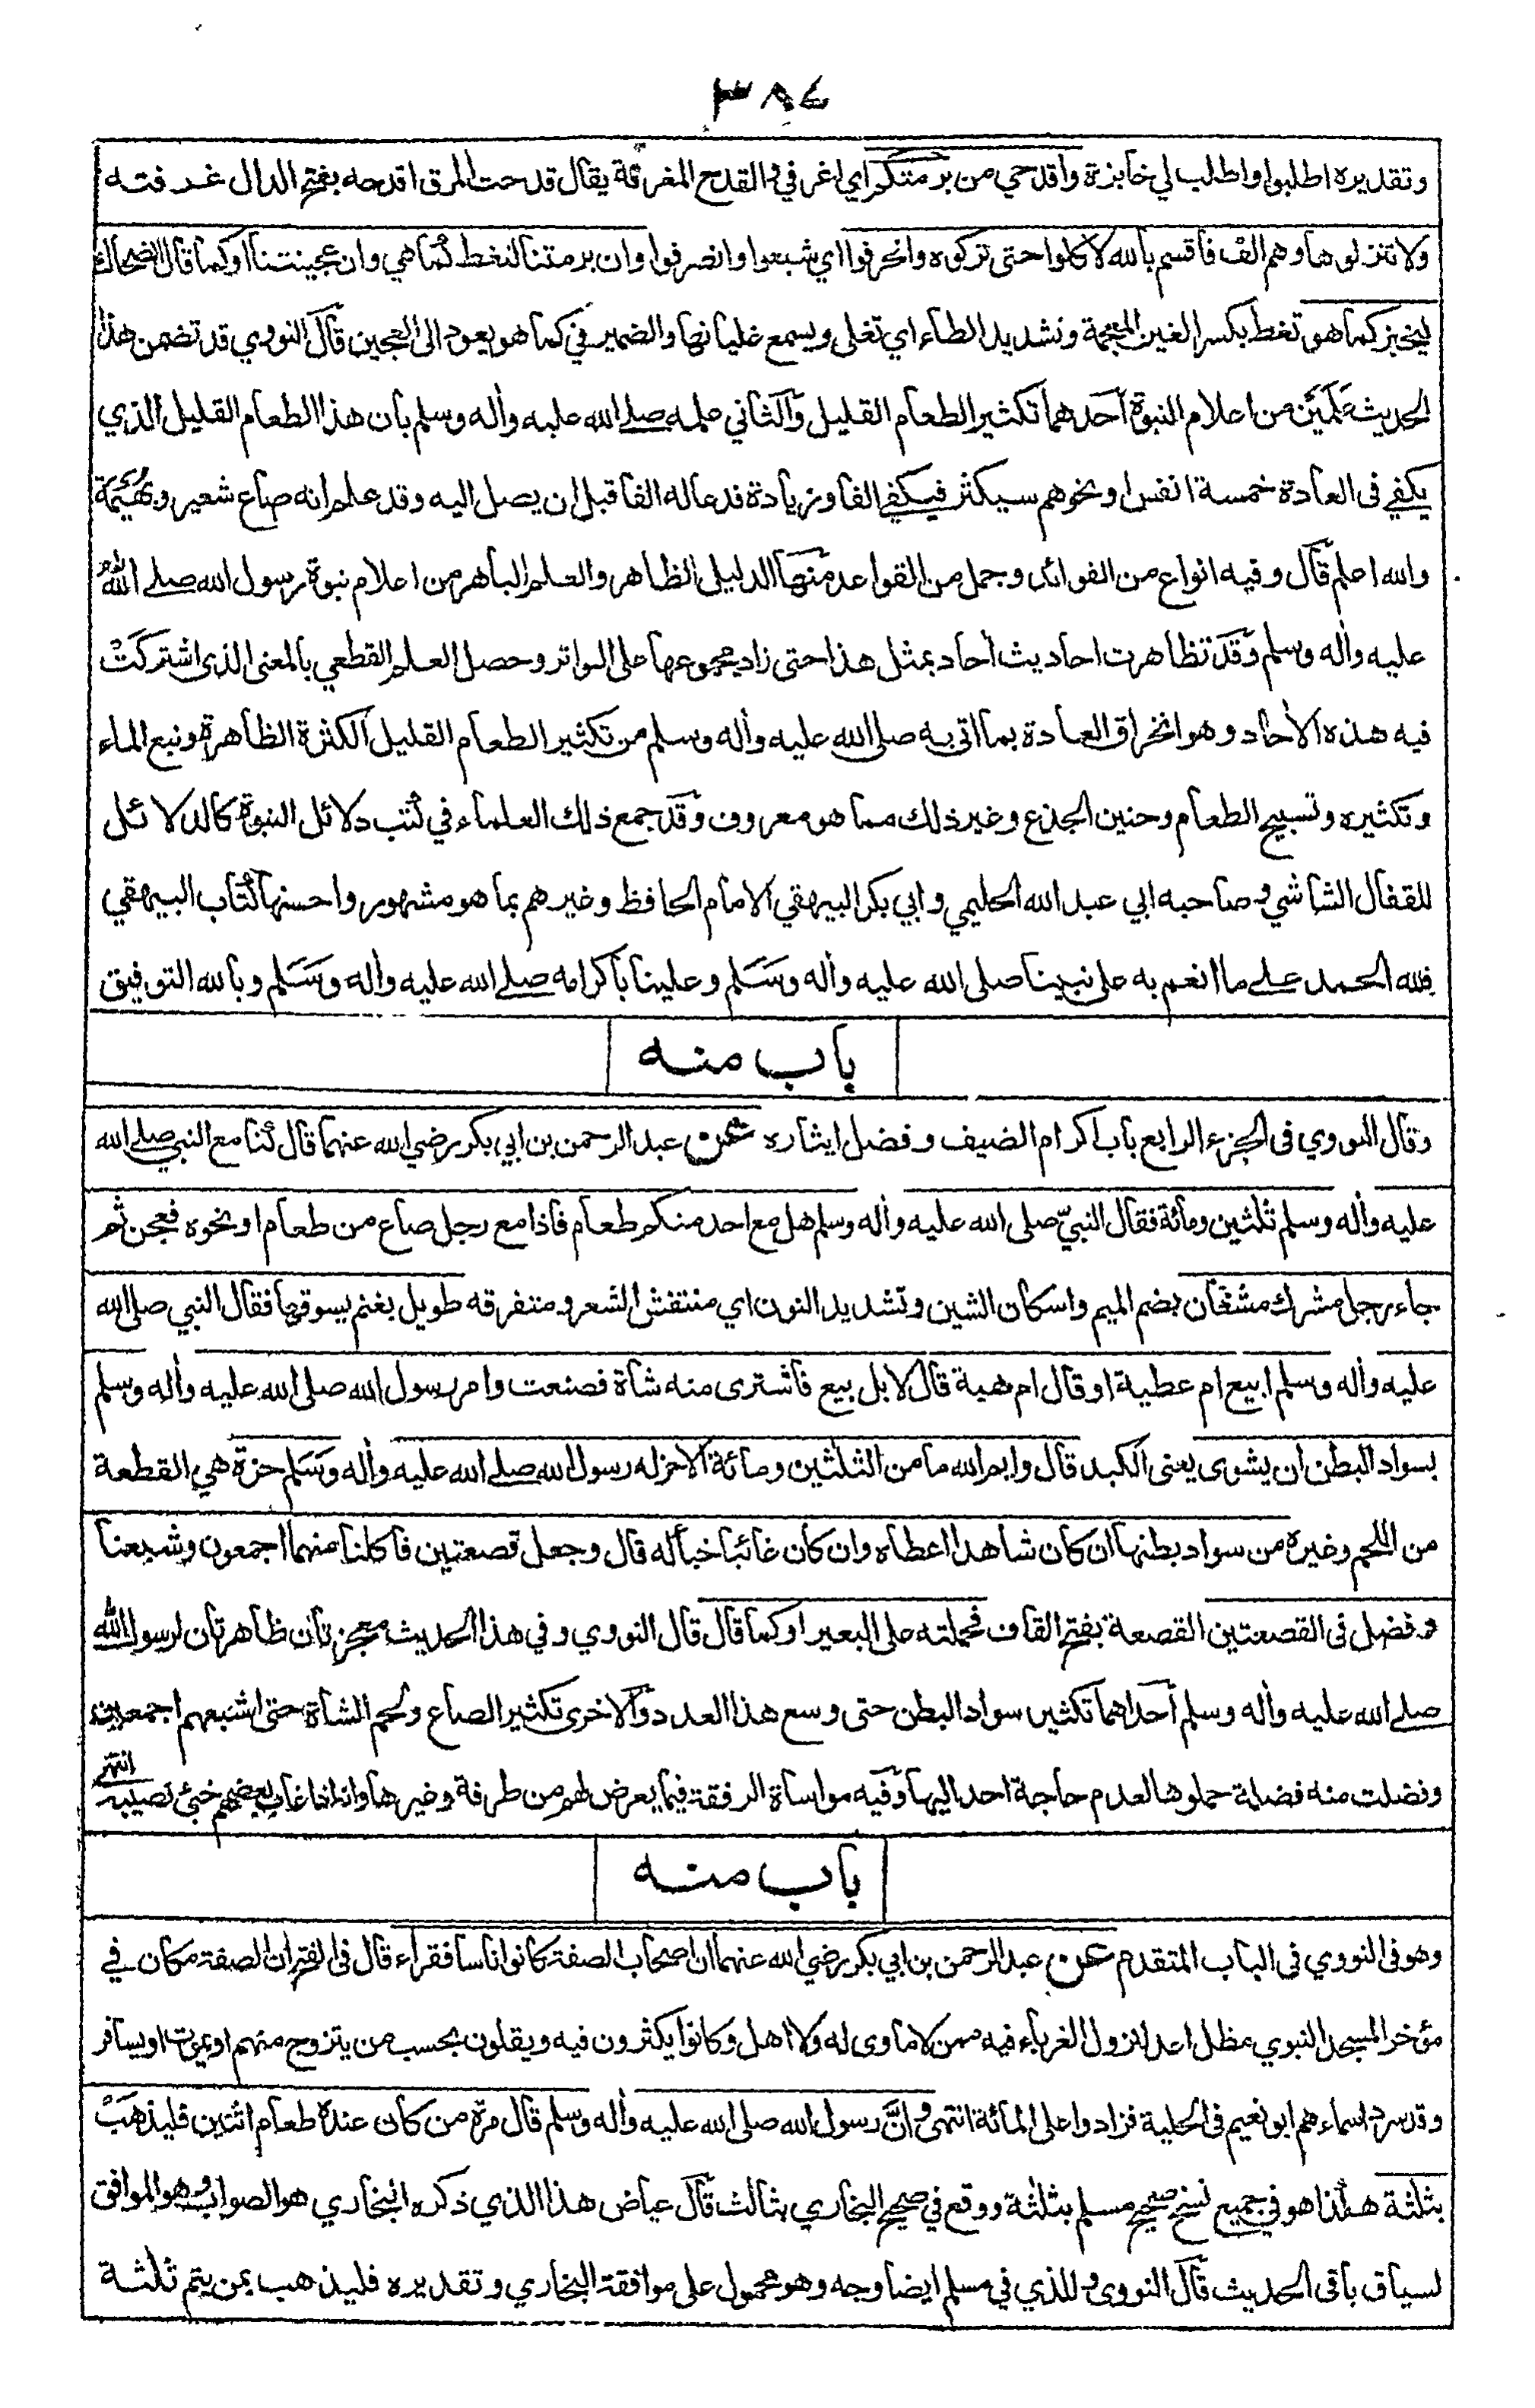 ٣٨٤
وتقديره اطلبوا واطلب لي خابزة واقدحي من برمتكم اي اغرفي والقدح المغرفة يقال قدحت المرق اقدحه بفتح الدال غرفته
ولا تنزلوها وهم الف فاقسم بالله لاكلوا حتى تركوه وانحرفوا اي شبعوا وانصرفوا وان برمتنا لتغط كما هي وان عجينتنا اوكما قال الضحاك
ليخبز كما هو تغط بكسر الغين المعجمة وتشديد الطاء اي تغلى ويسمع غليانها والضمير في كما هو يعود الى العجين قال النووي قد تضمن هذا
الحديث علمين من اعلام النبوة احدهما تكثير الطعام القليل والثاني علمه صلى الله عليه وأله وسلم بان هذا الطعام القليل الذي
يكفي فى العادة خمسة انفس او نحوهم سيكثر فيكفي الفا وزيادة فدعا له الفا قبل ان يصل اليه وقد علم انه صاع شعير وبهيمة
والله اعلم قال وفيه انواع من الفوائد وجمل من القواعد منها الدليل الظاهر والعلم الباهر من اعلام نبوة رسول الله صلى الله
عليه وأله وسلم وقد تظاهرت احاديث أحاد بمثل هذا حتى زاد مجموعها على التواتر وحصل العلم القطعي بالمعنى الذي اشتركت
فيه هذه الأحاد وهو انخراق العادة بما اتى به صلى الله عليه وأله وسلم من تكثير الطعام القليل الكثرة الظاهرة ونبع الماء
وتكثيره وتسبيح الطعام وحنين الجذع وغير ذلك مما هو معروف وقد جمع ذلك العلماء في كتب دلائل النبوة كالدلائل
للقفال الشاشي وصاحبه ابي عبد الله الحليمي وابي بكر البيهقي الامام الحافظ وغيرهم بما هو مشهور واحسنها كتاب البيهقي
فلله الحمد على ما انعم به على نبينا صلى الله عليه وأله وسلم وعلينا باكرامه صلى الله عليه وأله وسلم وبالله التوفيق
باب منه
وقال النووي فى الجزء الرابع باب اكرام الضيف وفضل ايثاره عن عبد الرحمن بن ابي بكر رضي الله عنهما قال كنا مع النبي صلى الله
عليه وأله وسلم ثلثين ومائة فقال النبيّ صلى الله عليه وأله وسلم هل مع احد منكم طعام فاذا مع رجل صاع من طعام او نحوه فعجن ثم
جاء رجل مشرك مشعان بضم الميم واسكان الشين وتشديد النون اي منتفش الشعر ومتفرقه طويل بغنم يسوقها فقال النبي صلى الله
عليه وأله وسلم ابيع ام عطية او قال ام هبة قال لا بل بيع فاشترى منه شاة فصنعت وامر رسول الله صلى الله عليه وأله وسلم
بسواد البطن ان يشوى يعنى الكبد قال وايم الله ما من الثلثين ومائة الا حز له رسول الله صلى الله عليه وأله وسلم حزة هي القطعة
من اللحم وغيره من سواد بطنها ان كان شاهدا اعطاه وان كان غائبا خبأ له قال وجعل قصعتين فاكلنا منهما اجمعون وشبعنا
وفضل فى القصعتين القصعة بفتح القاف فحملته على البعير اوكما قال قال النووي وفي هذا الحديث معجزتان ظاهرتان لرسول الله
صلى الله عليه وأله وسلم احداهما تكثير سواد البطن حتى وسع هذا العدد والاخرى تكثير الصاع ولحم الشاة حتى اشبعهم اجمعين
وفضلت منه فضلة حملوها لعدم حاجة احد اليها وفيه مواساة الرفقة فيما يعرض لهم من طرفة وغيرها وانه اذا غاب بعضهم خبئ نصيبه انتهى
باب منه
وهو فى النووي فى الباب المتقدم عن عبد الرحمن بن ابي بكر رضي الله عنهما ان اصحاب الصفة كانوا ناسا فقراء قال فى الفتح ان الصفة مكان في
مؤخر المسجد النبوي مظلل اعد لنزول الغرباء فيه ممن لا ماوى له ولا اهل وكانوا يكثرون فيه ويقلون بحسب من يتزوج منهم او يموت او يسافر
وقد سرد اسماءهم ابو نعيم فى الحلية فزادوا على المائة انتهى وانَّ رسول الله صلى الله عليه وأله وسلم قال مرة من كان عنده طعام اثنين فليذهب
بثلثة هكذا هو في جميع نسخ صحيح مسلم بثلثة ووقع في صحيح البخاري بثالث قال عياض هذا الذي ذكره البخاري هو الصواب وهو الموافق
لسياق باقى الحديث قال النووى وللذي في مسلم ايضا وجه وهو محمول على موافقة البخاري وتقديره فليذهب بمن يتم ثلثة